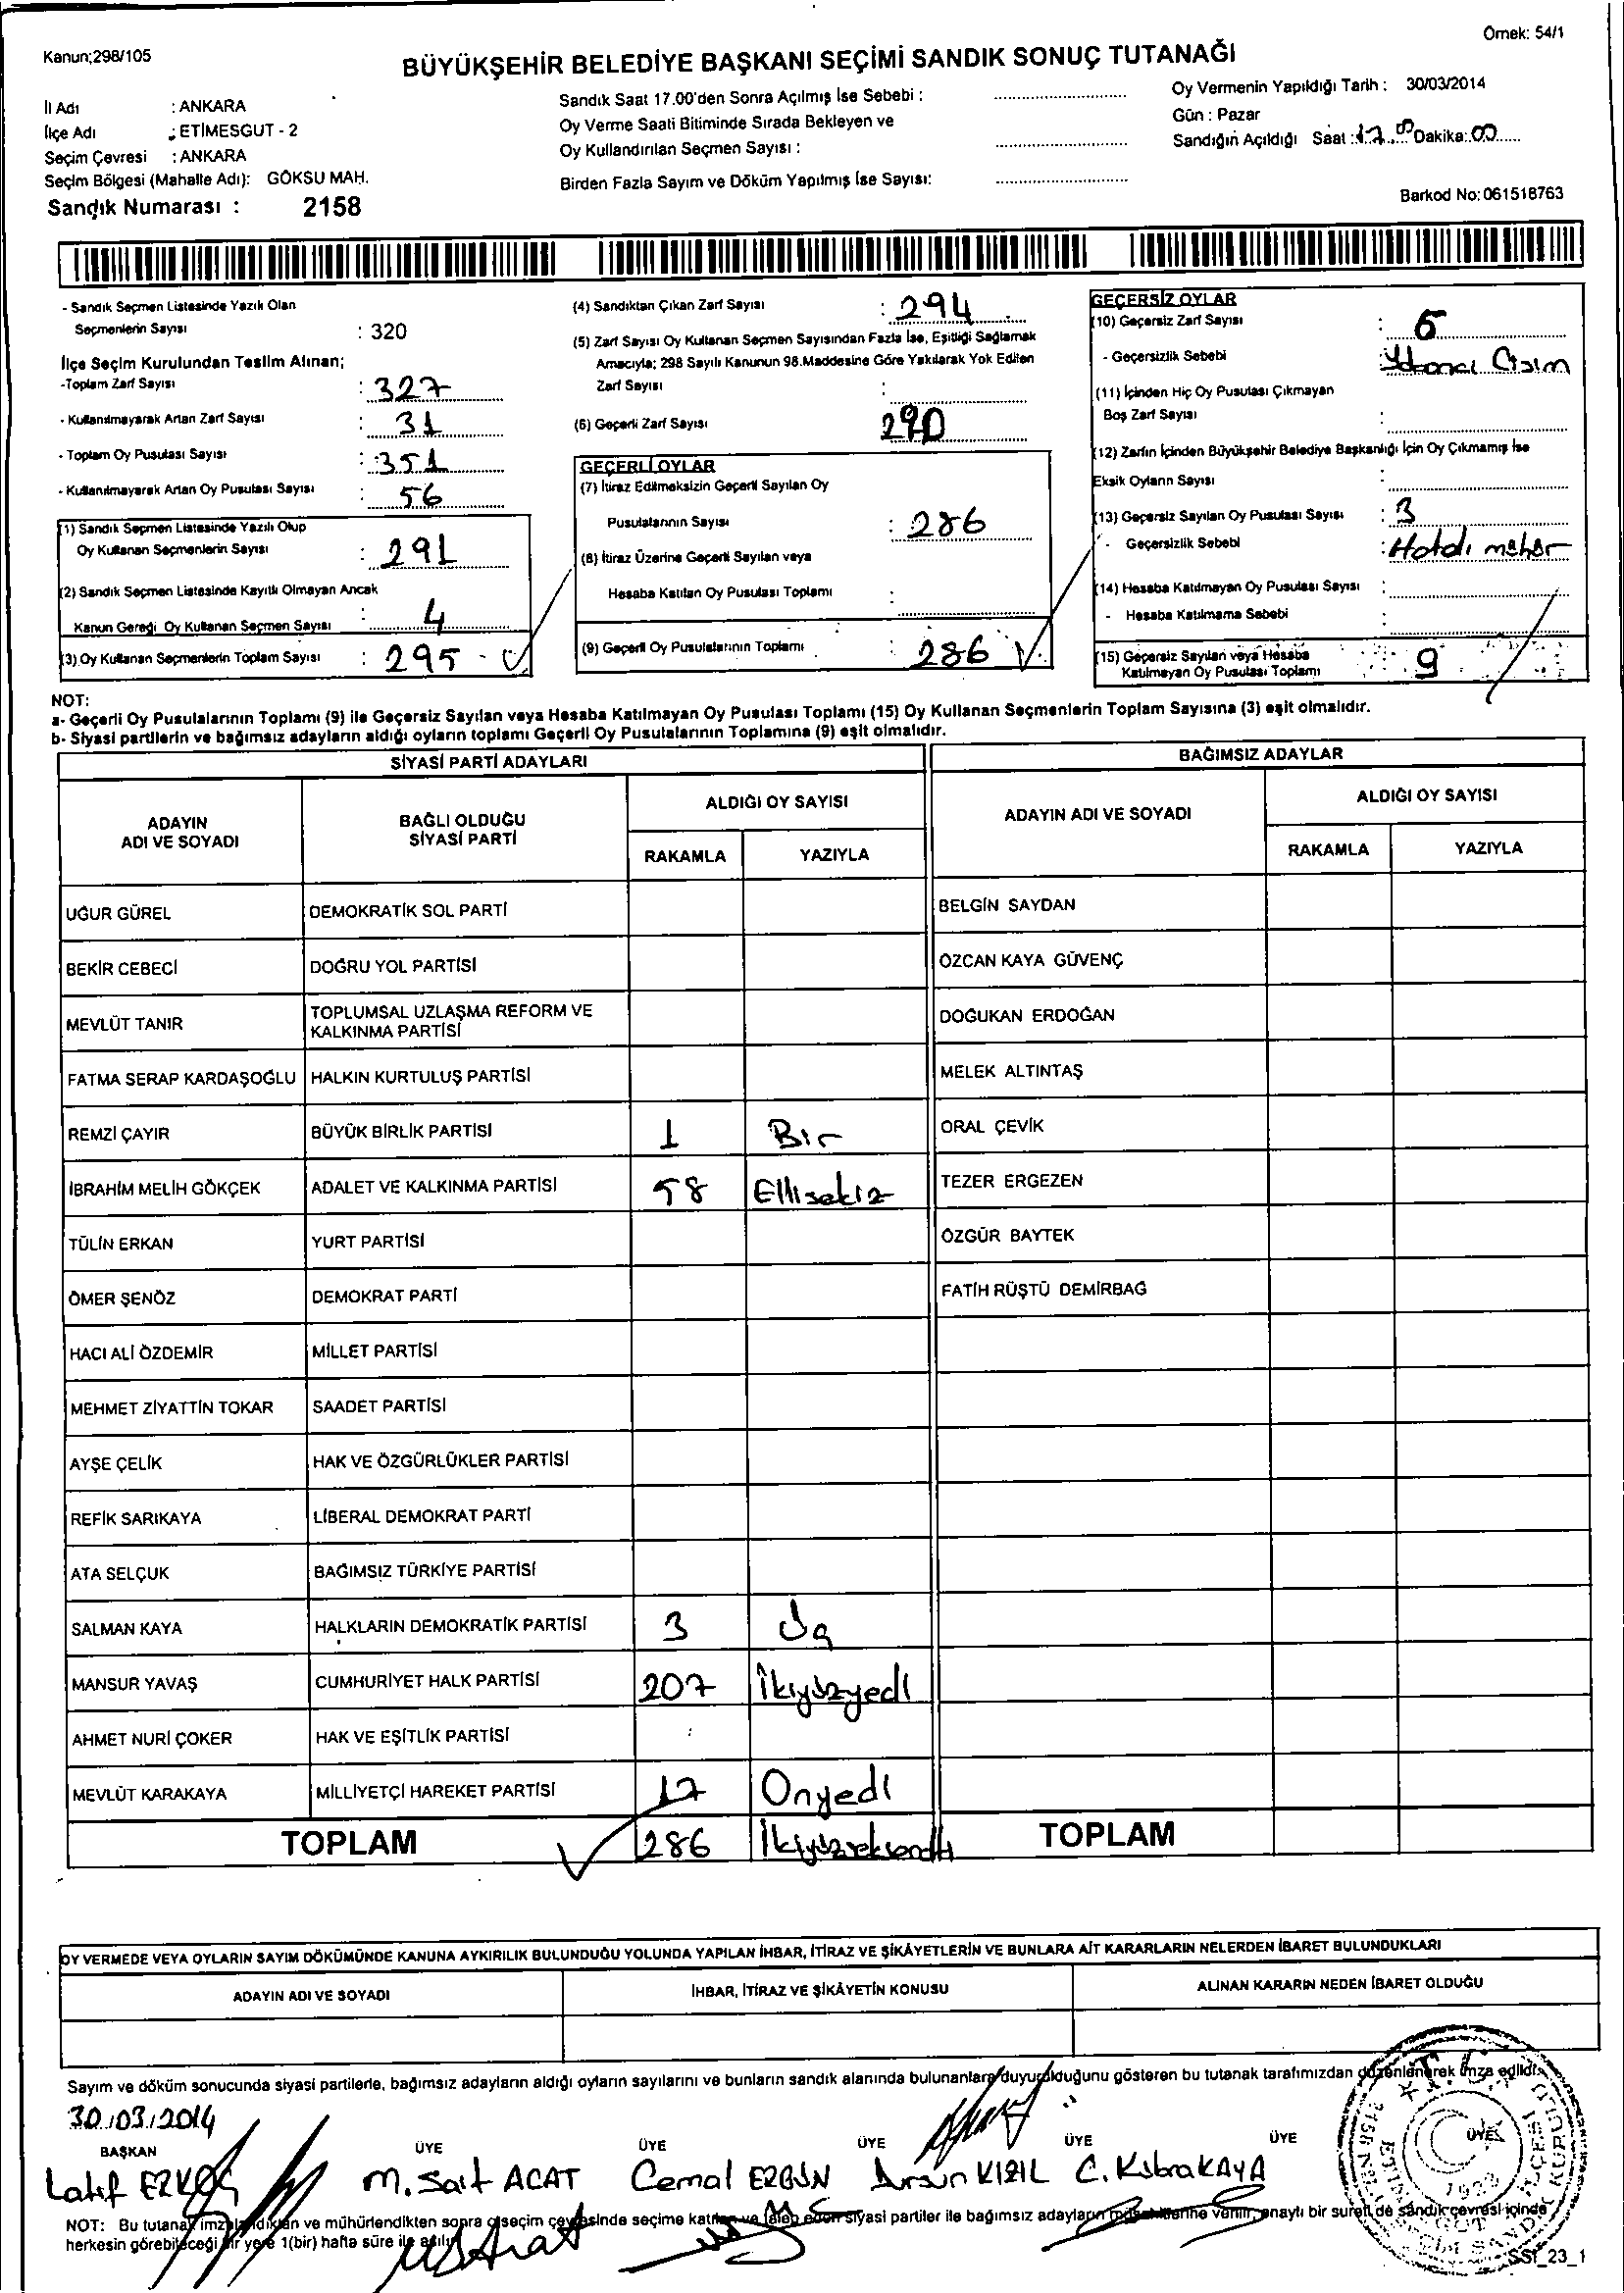 Kanun;298/105
Örnek: 54/1
BÜYÜKŞEHİR BELEDİYE BAŞKANI SEÇİMİ SANDIK SONUÇ TUTANAĞI
İl Adı : ANKARA
İlçe Adı : ETİMESGUT - 2
Seçim Çevresi : ANKARA
Seçim Bölgesi (Mahalle Adı): GÖKSU MAH.
Sandık Numarası : 2158
Sandık Saat 17.00'den Sonra Açılmış İse Sebebi :
Oy Verme Saati Bitiminde Sırada Bekleyen ve
Oy Kullandırılan Seçmen Sayısı :
Birden Fazla Sayım ve Döküm Yapılmış İse Sayısı:
Oy Vermenin Yapıldığı Tarih : 30/03/2014
Gün : Pazar
Sandığın Açıldığı Saat : 17.00 Dakika: 00
Barkod No: 061518763
- Sandık Seçmen Listesinde Yazılı Olan
Seçmenlerin Sayısı : 320
İlçe Seçim Kurulundan Teslim Alınan;
-Toplam Zarf Sayısı : 327
- Kullanılmayarak Artan Zarf Sayısı : 31
- Toplam Oy Pusulası Sayısı : 351
- Kullanılmayarak Artan Oy Pusulası Sayısı : 56
(1) Sandık Seçmen Listesinde Yazılı Olup
Oy Kullanan Seçmenlerin Sayısı : 291
(2) Sandık Seçmen Listesinde Kayıtlı Olmayan Ancak
Kanun Gereği Oy Kullanan Seçmen Sayısı : 4
(3) Oy Kullanan Seçmenlerin Toplam Sayısı : 295
(4) Sandıktan Çıkan Zarf Sayısı : 294
(5) Zarf Sayısı Oy Kullanan Seçmen Sayısından Fazla İse, Eşitliği Sağlamak
Amacıyla; 298 Sayılı Kanunun 98.Maddesine Göre Yakılarak Yok Edilen
Zarf Sayısı :
(6) Geçerli Zarf Sayısı 290
GEÇERLİ OYLAR
(7) İtiraz Edilmeksizin Geçerli Sayılan Oy
Pusulalarının Sayısı : 286
(8) İtiraz Üzerine Geçerli Sayılan veya
Hesaba Katılan Oy Pusulası Toplamı :
(9) Geçerli Oy Pusulalarının Toplamı : 286
GEÇERSİZ OYLAR
(10) Geçersiz Zarf Sayısı : 5
- Geçersizlik Sebebi : Yabancı Cisim
(11) İçinden Hiç Oy Pusulası Çıkmayan
Boş Zarf Sayısı :
(12) Zarfın İçinden Büyükşehir Belediye Başkanlığı İçin Oy Çıkmamış İse
Eksik Oyların Sayısı :
(13) Geçersiz Sayılan Oy Pusulası Sayısı : 3
- Geçersizlik Sebebi : Hatalı mühür
(14) Hesaba Katılmayan Oy Pusulası Sayısı :
- Hesaba Katılmama Sebebi :
(15) Geçersiz Sayılan veya Hesaba
Katılmayan Oy Pusulası Toplamı : 9
NOT:
a- Geçerli Oy Pusulalarının Toplamı (9) ile Geçersiz Sayılan veya Hesaba Katılmayan Oy Pusulası Toplamı (15) Oy Kullanan Seçmenlerin Toplam Sayısına (3) eşit olmalıdır.
b- Siyasi partilerin ve bağımsız adayların aldığı oyların toplamı Geçerli Oy Pusulalarının Toplamına (9) eşit olmalıdır.
SİYASİ PARTİ ADAYLARI
BAĞIMSIZ ADAYLAR
ADAYIN
ADI VE SOYADI
BAĞLI OLDUĞU
SİYASİ PARTİ
ALDIĞI OY SAYISI
RAKAMLA YAZIYLA
ADAYIN ADI VE SOYADI
ALDIĞI OY SAYISI
RAKAMLA YAZIYLA
UĞUR GÜREL DEMOKRATİK SOL PARTİ BELGİN SAYDAN
BEKİR CEBECİ DOĞRU YOL PARTİSİ ÖZCAN KAYA GÜVENÇ
MEVLÜT TANIR TOPLUMSAL UZLAŞMA REFORM VE
KALKINMA PARTİSİ DOĞUKAN ERDOĞAN
FATMA SERAP KARDAŞOĞLU HALKIN KURTULUŞ PARTİSİ MELEK ALTINTAŞ
REMZİ ÇAYIR BÜYÜK BİRLİK PARTİSİ 1 Bir ORAL ÇEVİK
İBRAHİM MELİH GÖKÇEK ADALET VE KALKINMA PARTİSİ 58 Ellisekiz TEZER ERGEZEN
TÜLİN ERKAN YURT PARTİSİ ÖZGÜR BAYTEK
ÖMER ŞENÖZ DEMOKRAT PARTİ FATİH RÜŞTÜ DEMİRBAĞ
HACI ALİ ÖZDEMİR MİLLET PARTİSİ
MEHMET ZİYATTİN TOKAR SAADET PARTİSİ
AYŞE ÇELİK HAK VE ÖZGÜRLÜKLER PARTİSİ
REFİK SARIKAYA LİBERAL DEMOKRAT PARTİ
ATA SELÇUK BAĞIMSIZ TÜRKİYE PARTİSİ
SALMAN KAYA HALKLARIN DEMOKRATİK PARTİSİ 3 Üç
MANSUR YAVAŞ CUMHURİYET HALK PARTİSİ 207 İkiyüzyedi
AHMET NURİ ÇOKER HAK VE EŞİTLİK PARTİSİ
MEVLÜT KARAKAYA MİLLİYETÇİ HAREKET PARTİSİ 17 Onyedi
TOPLAM 286 İkiyüzseksenaltı TOPLAM
OY VERMEDE VEYA OYLARIN SAYIM DÖKÜMÜNDE KANUNA AYKIRILIK BULUNDUĞU YOLUNDA YAPILAN İHBAR, İTİRAZ VE ŞİKÂYETLERİN VE BUNLARA AİT KARARLARIN NELERDEN İBARET BULUNDUKLARI
ADAYIN ADI VE SOYADI İHBAR, İTİRAZ VE ŞİKÂYETİN KONUSU ALINAN KARARIN NEDEN İBARET OLDUĞU
Sayım ve döküm sonucunda siyasi partilerle, bağımsız adayların aldığı oyların sayılarını ve bunların sandık alanında bulunanlara duyurulduğunu gösteren bu tutanak tarafımızdan düzenlenerek imza edildi.
30/03/2014
BAŞKAN ÜYE ÜYE ÜYE ÜYE ÜYE ÜYE
Latif EZKOÇ M. Sait ACAT Cemal ERGÜN Dursun KIZIL C. Kübra KAYA
NOT: Bu tutanak imzalandıktan ve mühürlendikten sonra o seçim çevresinde seçime katılan ve talep eden siyasi partiler ile bağımsız adayların müşahitlerine verilir, onaylı bir sureti de sandık çevresi içinde
herkesin görebileceği bir yere 1(bir) hafta süre ile asılır.
SSI_23_1